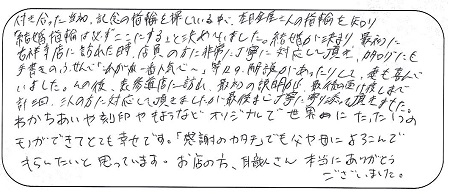 付き合った当初、記念の指輪を探している中、杢目金屋さんの指輪を知り
結婚指輪は必ずここにすると決めていました。結婚が決まり最初に
吉祥寺店に訪れた時、店員の方に非常に丁寧に対応して頂き、カタログにも
手書きのふせんで「わが家一番人気で〜」等々の解説があったりして、妻も喜んで
いました。その後、表参道店に訪れ、最初の説明から最後の受け渡しまで
計3回、三人の方に対応して頂きましたが最後まで丁寧に寄り添って頂きました。
わかちあいや刻印やもようなどオリジナルで世界に たった1つの
モノができてとても幸せです。「感謝のカタチ」でも父や母によろこんで
もらいたいと思っています。お店の方、職人さん本当にありがとう
ございました。